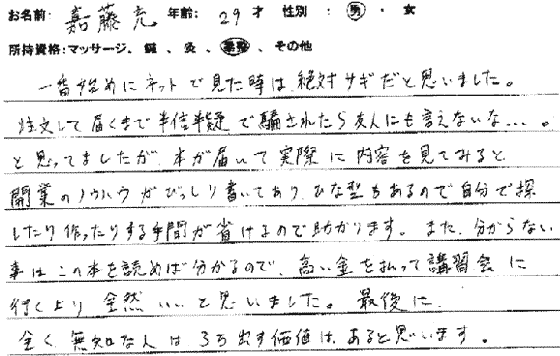 お名前: 嘉藤 充 年齢: 29 才 性別: 男 ・ 女
所持資格:マッサージ、鍼、灸、柔整、その他
一番始めにネットで見た時は絶対サギだと思いました。
注文して届くまで半信半疑で騙されたら友人にも言えないな…。
と思ってましたが本が届いて実際に内容を見てみると
開業のノウハウがびっしり書いてあり、ひな型もあるので自分で探
したり作ったりする手間が省けるので助かります。また、分からない
事はこの本を読めば分かるので、高い金を払って講習会に
行くより全然いいと思いました。最後に
全く無知な人は3万出す価値は、あると思います。